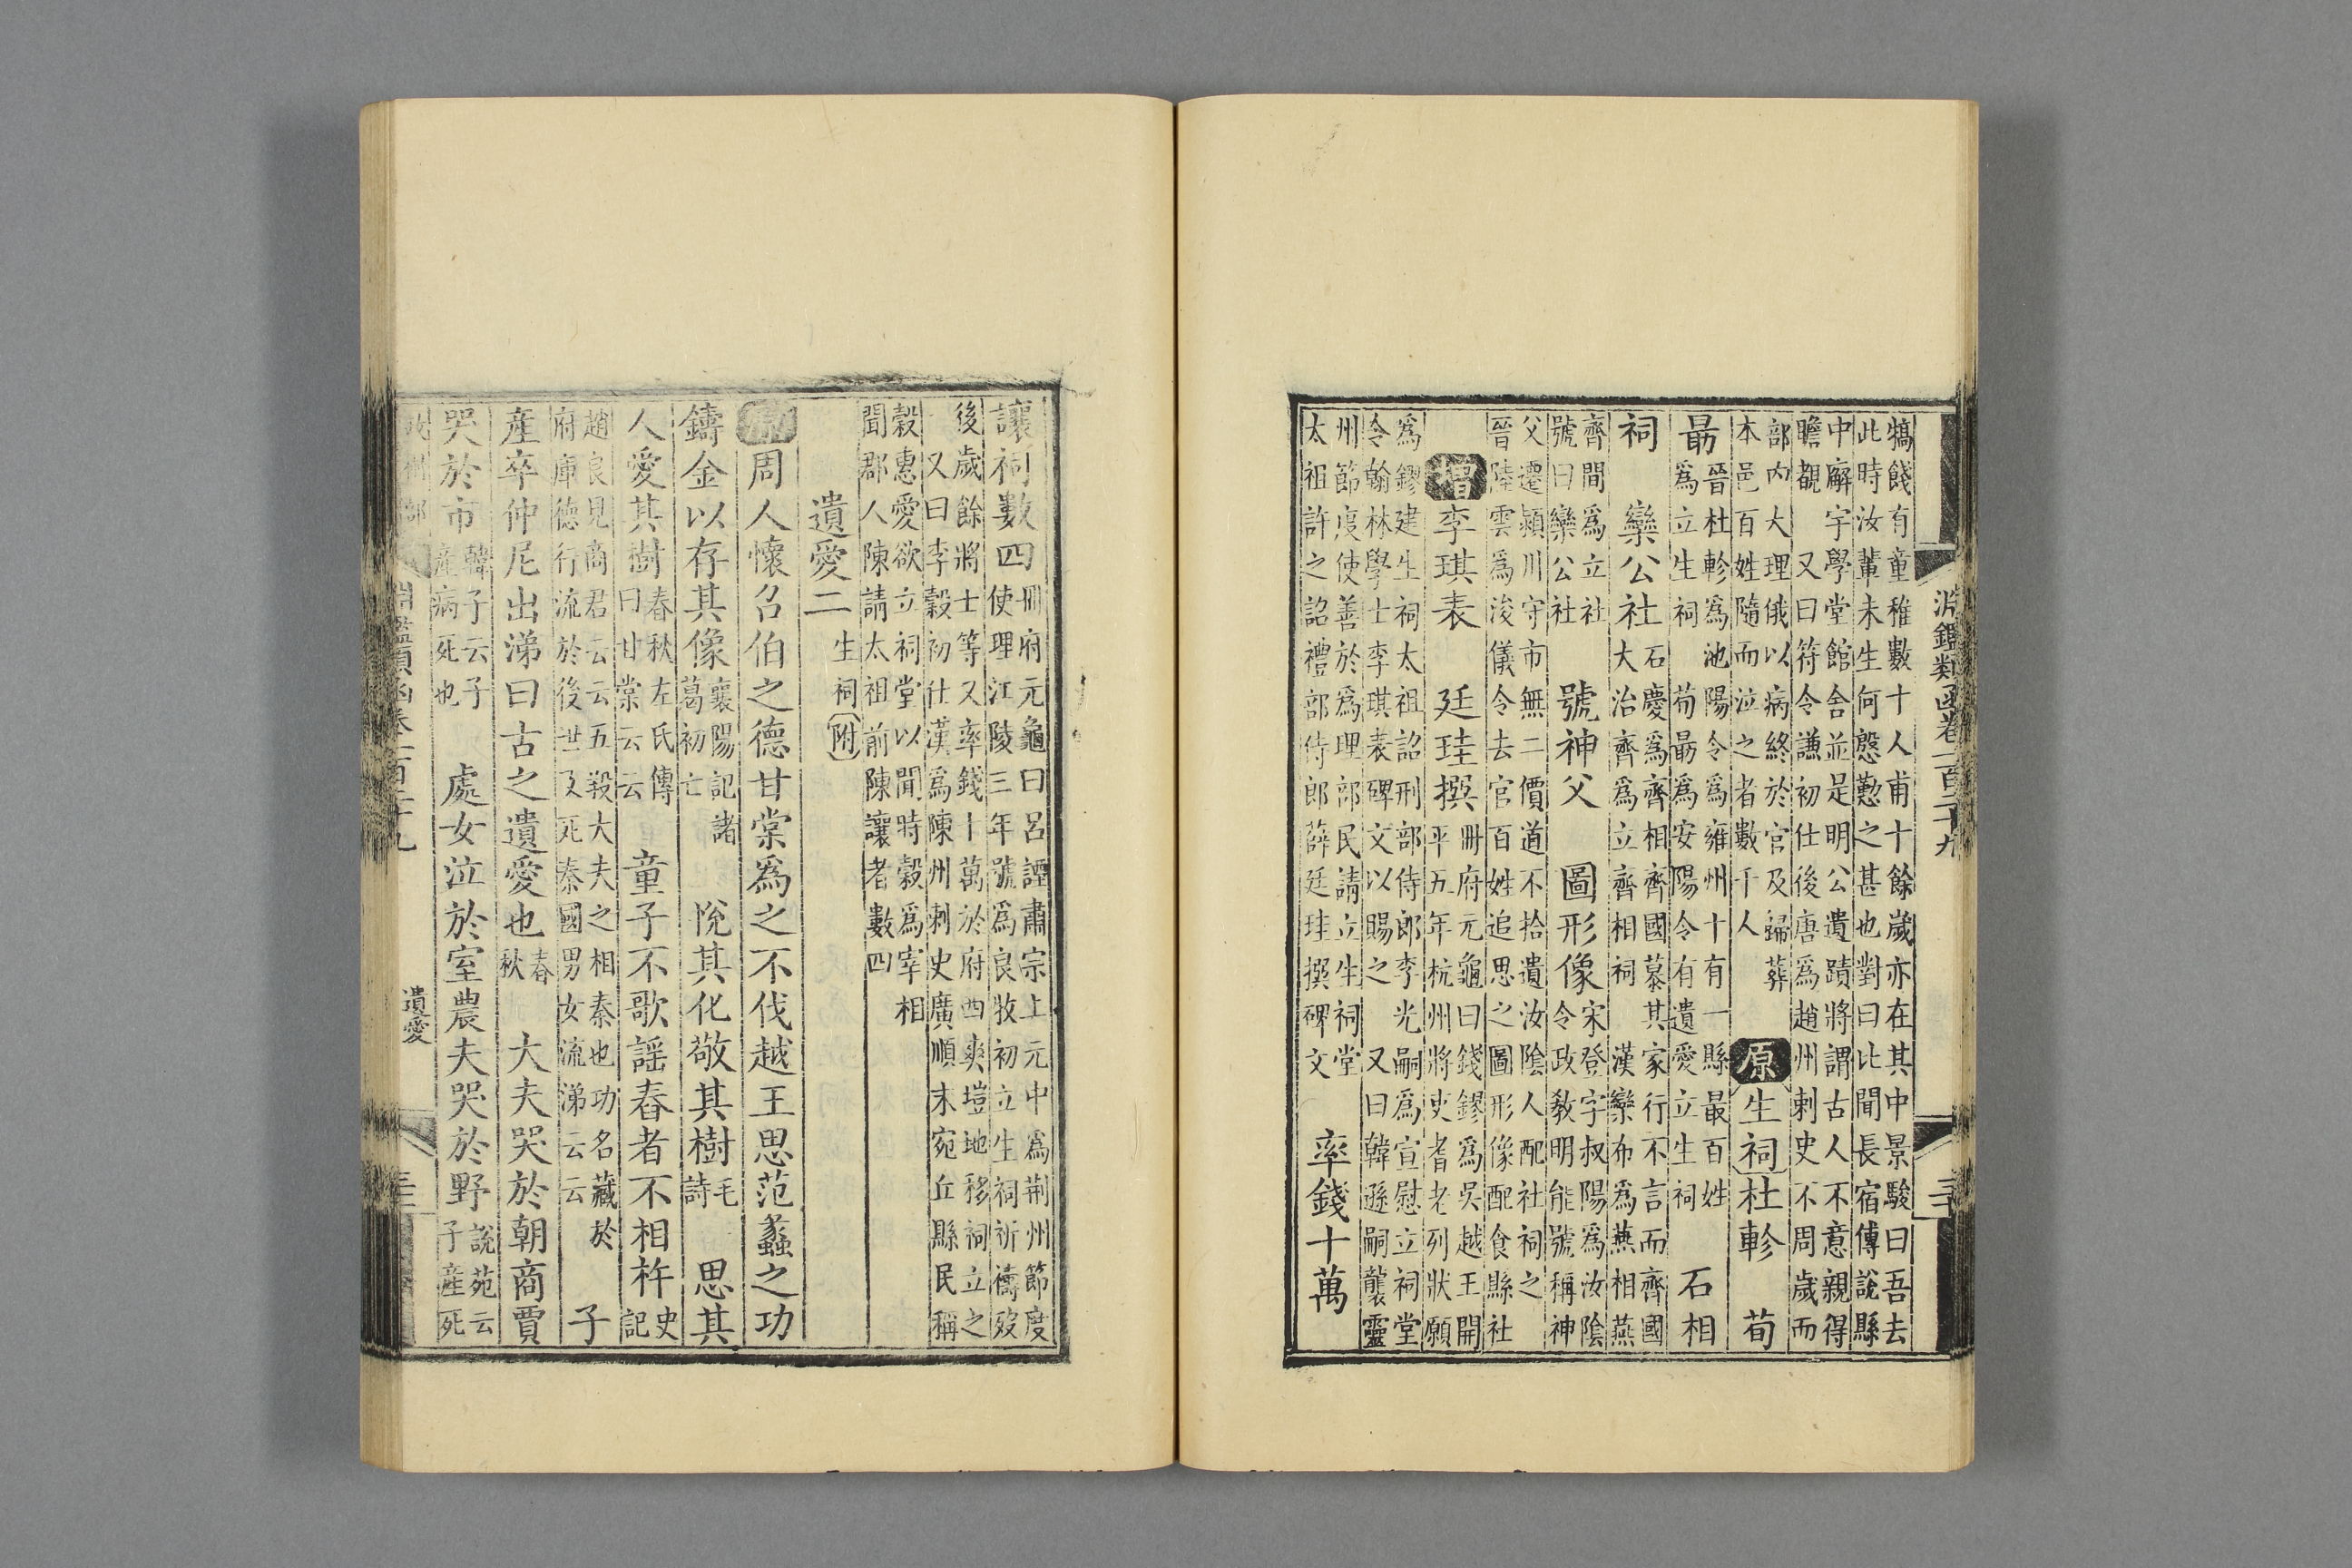 淵鑑類函卷一百二十九
犒餞有童稚數十人甫十餘歲亦在其中景駿曰吾去
此時汝輩未生何慇懃之甚也對曰比聞長宿傳說縣
中廨宇學堂館舍並是明公遺蹟將謂古人不意親得
瞻覩 又曰符令謙初仕後唐爲趙州刺史不周歲而
部內大理俄以病終於官及歸葬
本邑百姓隨而泣之者數千人
原生祠杜軫 荀
勗
晉杜軫爲池陽令爲雍州十有一縣最百姓
爲立生祠 荀勗爲安陽令有遺愛立生祠
石相
祠 欒公社
石慶爲齊相齊國慕其家行不言而齊國
大治齊爲立齊相祠 漢欒布爲燕相燕
齊間爲立社
號曰欒公社
號神父 圖形像
宋登字叔陽爲汝陰
令政教明能號稱神
父遷潁川守市無二價道不拾遺汝陰人配社祠之
晉陸雲爲浚儀令去官百姓追思之圖形像配食縣社
增李琪表 廷珪撰
冊府元龜曰錢鏐爲吳越王開
平五年杭州將吏耆老列狀願
爲鏐建生祠太祖詔刑部侍郎李光嗣爲宣慰立祠堂
令翰林學士李琪表碑文以賜之 又曰韓遜嗣襲靈
州節度使善於爲理部民請立生祠堂
太祖許之詔禮部侍郎薛廷珪撰碑文
率錢十萬
讓祠數四
冊府元龜曰呂諲肅宗上元中爲荆州節度
使理江陵三年號爲良牧初立生祠祈禱歿
後歲餘將士等又率錢十萬於府西爽塏地移祠立之
又曰李穀初仕漢爲陳州刺史廣順末宛丘縣民稱
穀惠愛欲立祠堂以聞時穀爲宰相
聞郡人陳請太祖前陳讓者數四
遺愛二
生祠附
周人懷召伯之德甘棠爲之不伐越王思范蠡之功
鑄金以存其像
襄陽記諸
葛初亡
悅其化敬其樹
毛
詩
思其
人愛其樹
春秋左氏傳
曰甘棠云云
童子不歌謡舂者不相杵
史
記
趙良見商君云云五羖大夫之相秦也功名藏於
府庫德行流於後世及死秦國男女流涕云云
子
產卒仲尼出涕曰古之遺愛也
春
秋
大夫哭於朝商賈
哭於市
韓子云子
產病死也
處女泣於室農夫哭於野
說苑云
子產死
遺愛